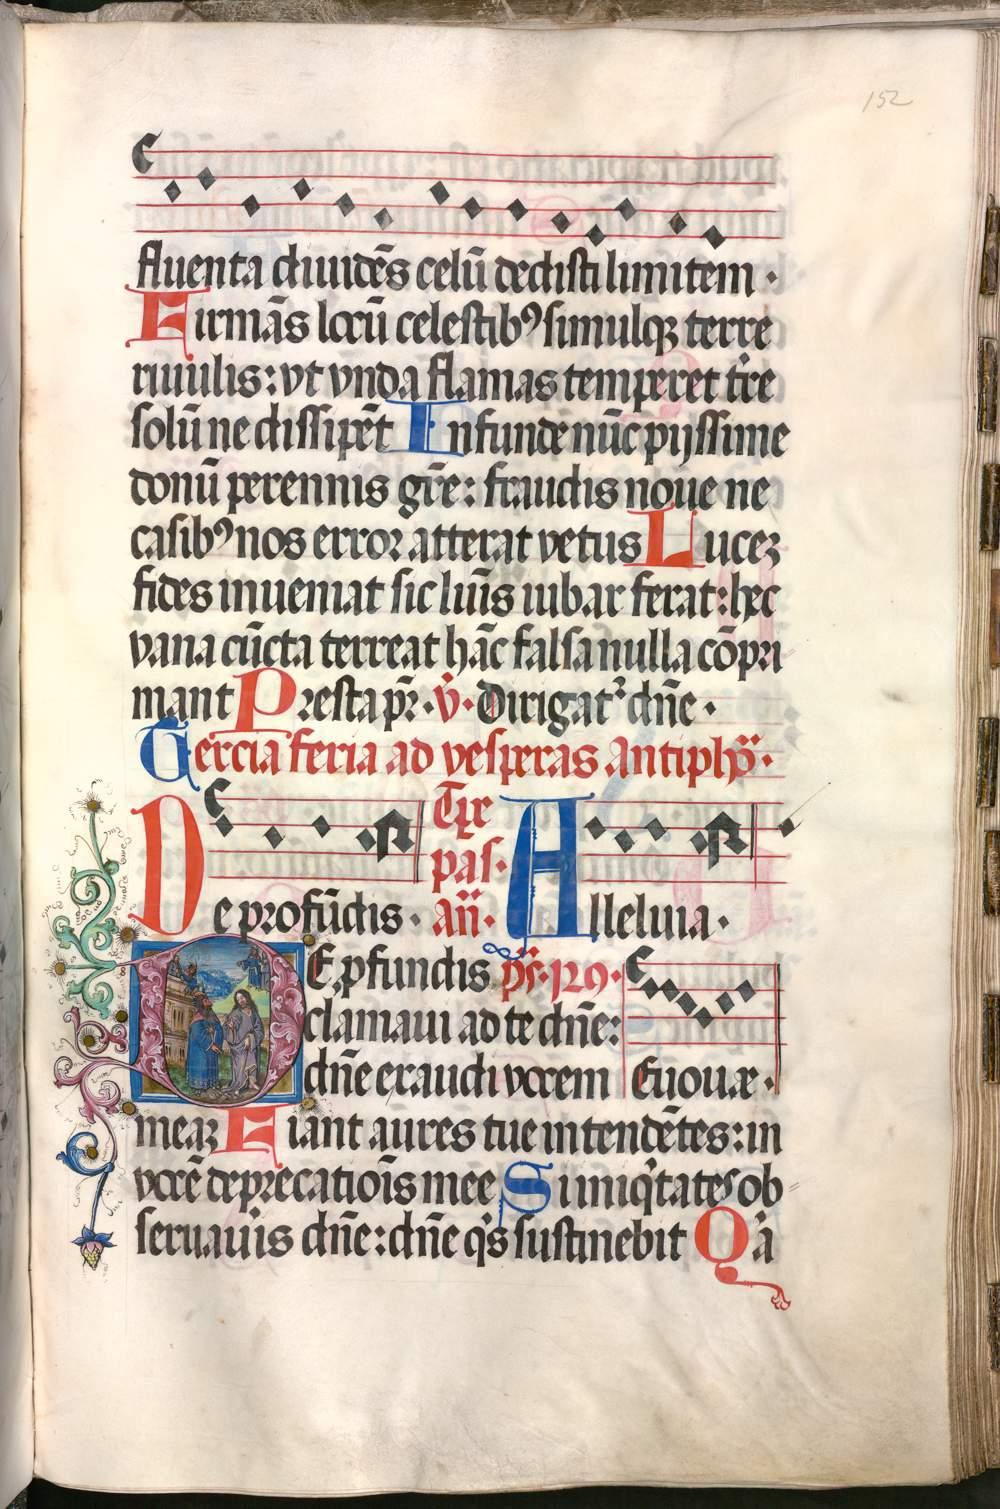 152
fluenta diuidēs celū dedisti limitem ·
Firmās locū celestibꝰ simulqꝫ terre
riuulis: vt vnda flamas temperet tr̄e
solū ne dissipēt Infunde nūc pijssime
donū perennis gr̄e: fraudis noue ne
casibꝰ nos error atterat vetus Luceꝫ
fides inueniat sic lui̅s iubar ferat: hec
vana cūcta terreat hāc falsa nulla cōpri
mant Presta pr̄ · v̄ · Dirigat᷑ dn̄e ·
Tercia feria ad vesperas Antiph̄ ·
De profūdis · Tꝑe pas · an̄ · Alleluia ·
DE ꝓfundis ps̄ · 129 ·
clamaui ad te dn̄e:
dn̄e exaudi vocem Euouae ·
meaꝫ Fiant aures tue intendētes: in
vocē deprecatiōis mee Si iniq̇tates ob
seruaui̅s dn̄e: dn̄e qi̅s sustinebit Qā